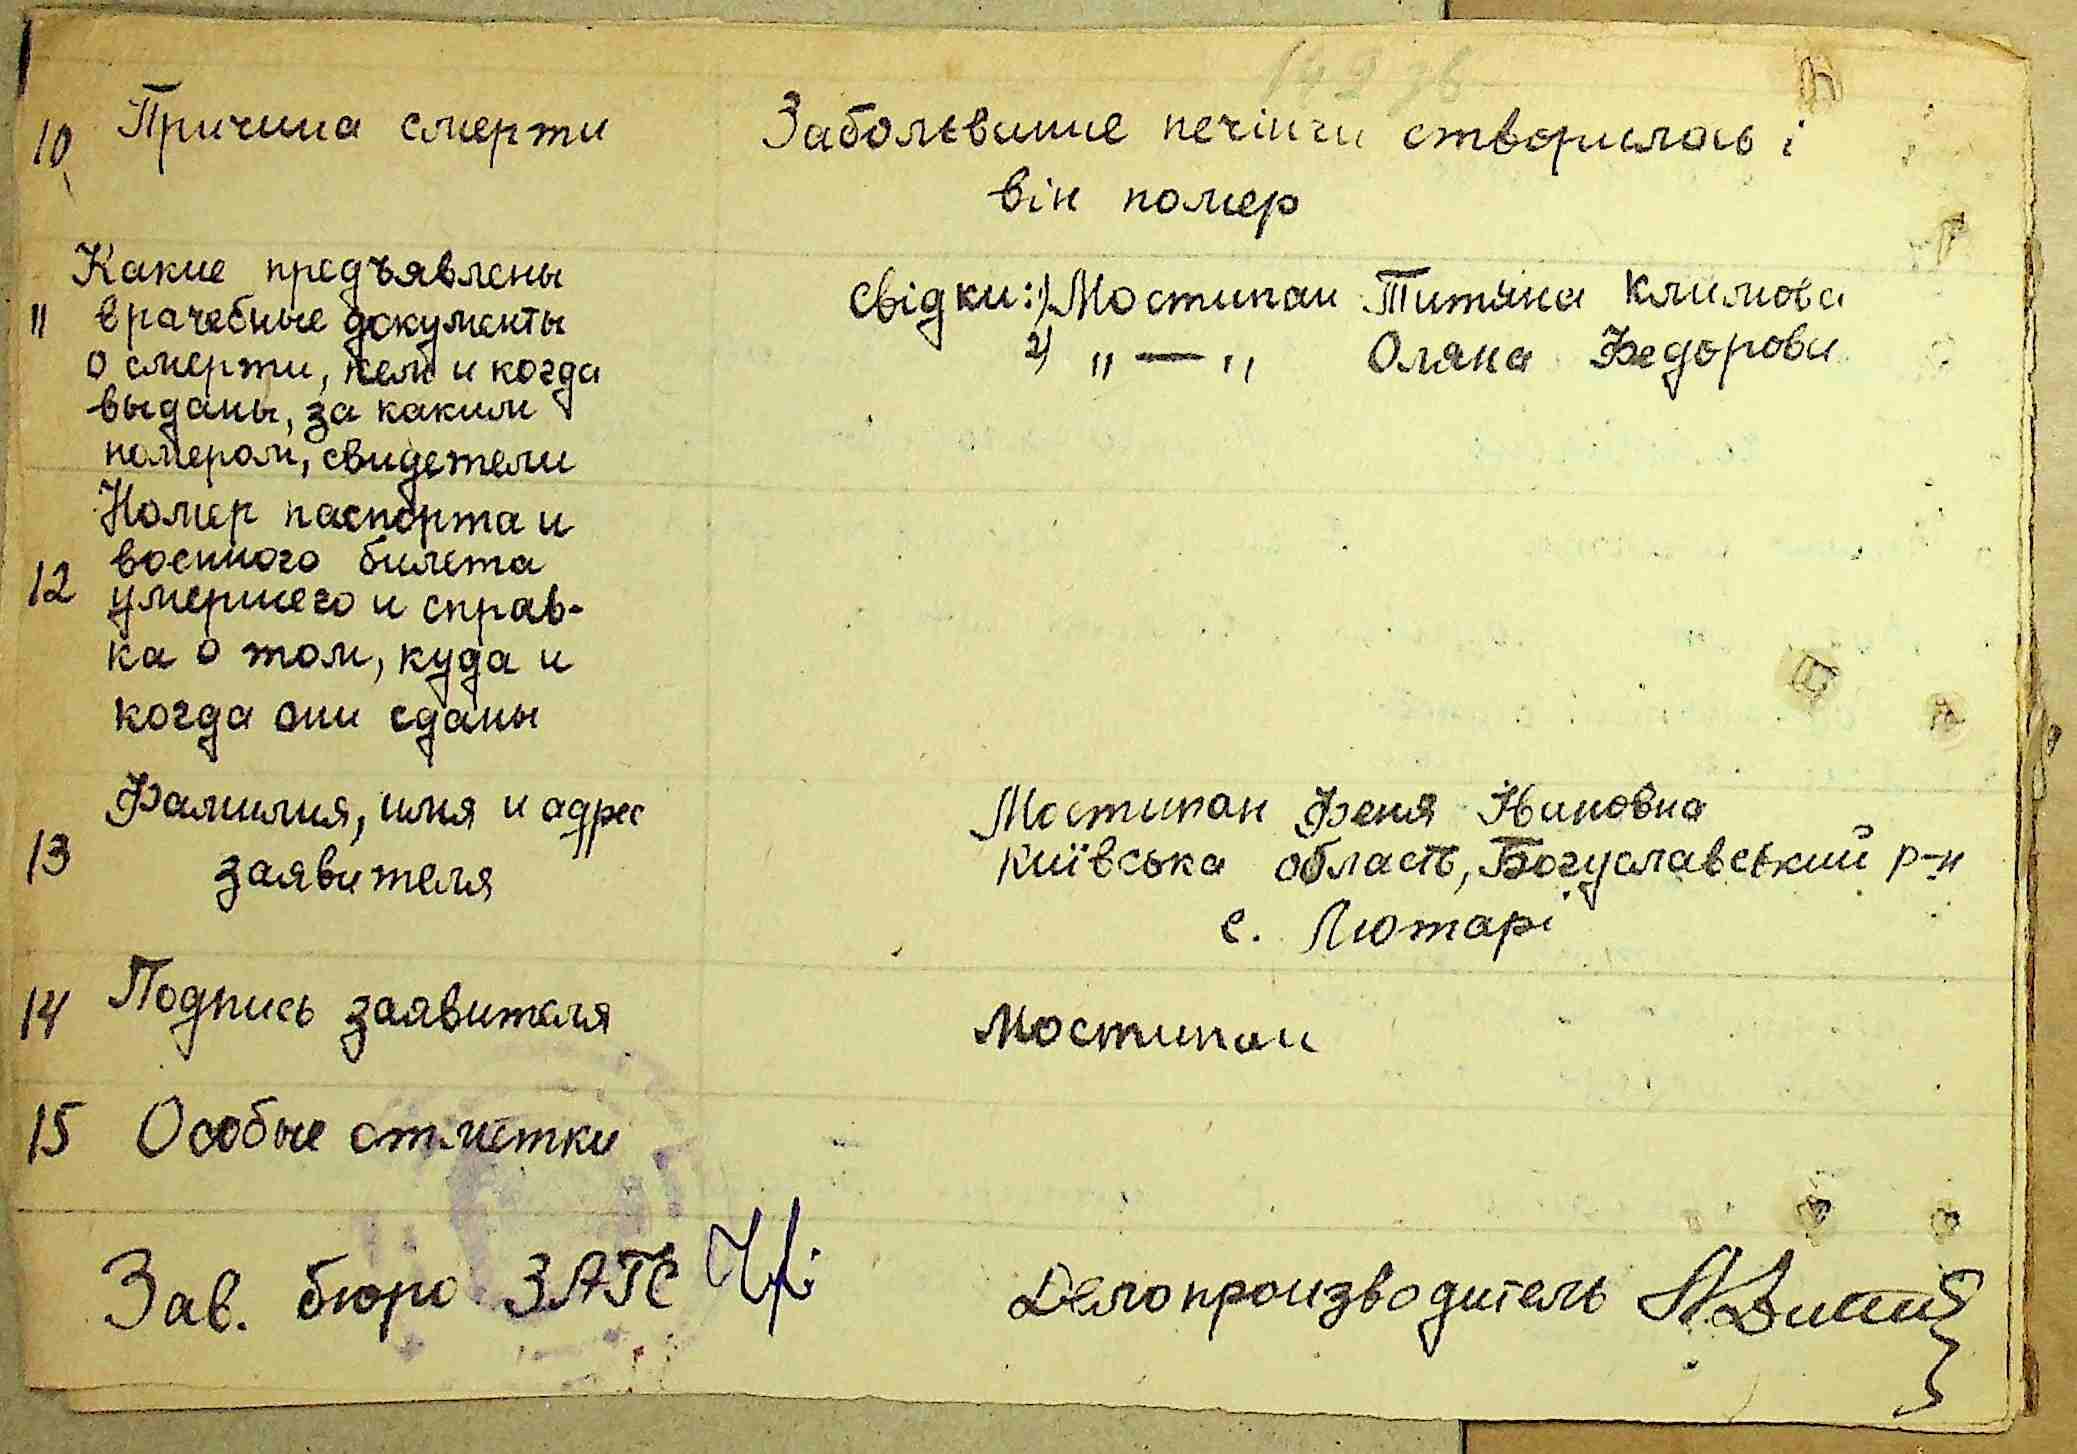 142 зв
10 Причина смерти
Заболєвание печінки створилась і
він помер
11 Какие предъявлены
врачебные документы
о смерти, кем и когда
выданы, за каким
номером, свидетели
свідки: 1) Мостипан Титяна Климова
2) „ — „ Оляна Федорови
12 Номер паспорта и
военного билета
умершего и справ-
ка о том, куда и
когда они сданы
13 Фамилия, имя и адрес
заявителя
Мостипан Феня Ивановна
Київська область, Богуславський р-н
с. Лютарі
14 Подпись заявителя
Мостипан
15 Особые отметки
Зав. бюро ЗАГС
Делопроизводитель